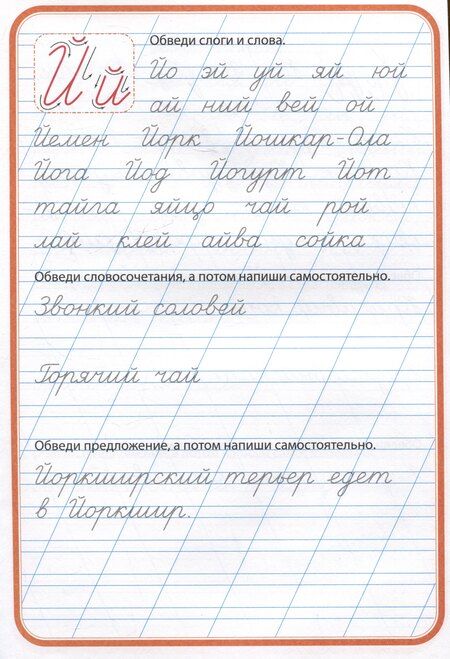 Й й
Обведи слоги и слова.
Йо эй уй яй юй
ай ний вей ой
Йемен Йорк Йошкар-Ола
Йога Йод Йогурт Йот
тайга яйцо чай рой
лай клей айва сойка
Обведи словосочетания, а потом напиши самостоятельно.
Звонкий соловей
Горячий чай
Обведи предложение, а потом напиши самостоятельно.
Йоркширский терьер едет
в Йоркшир.